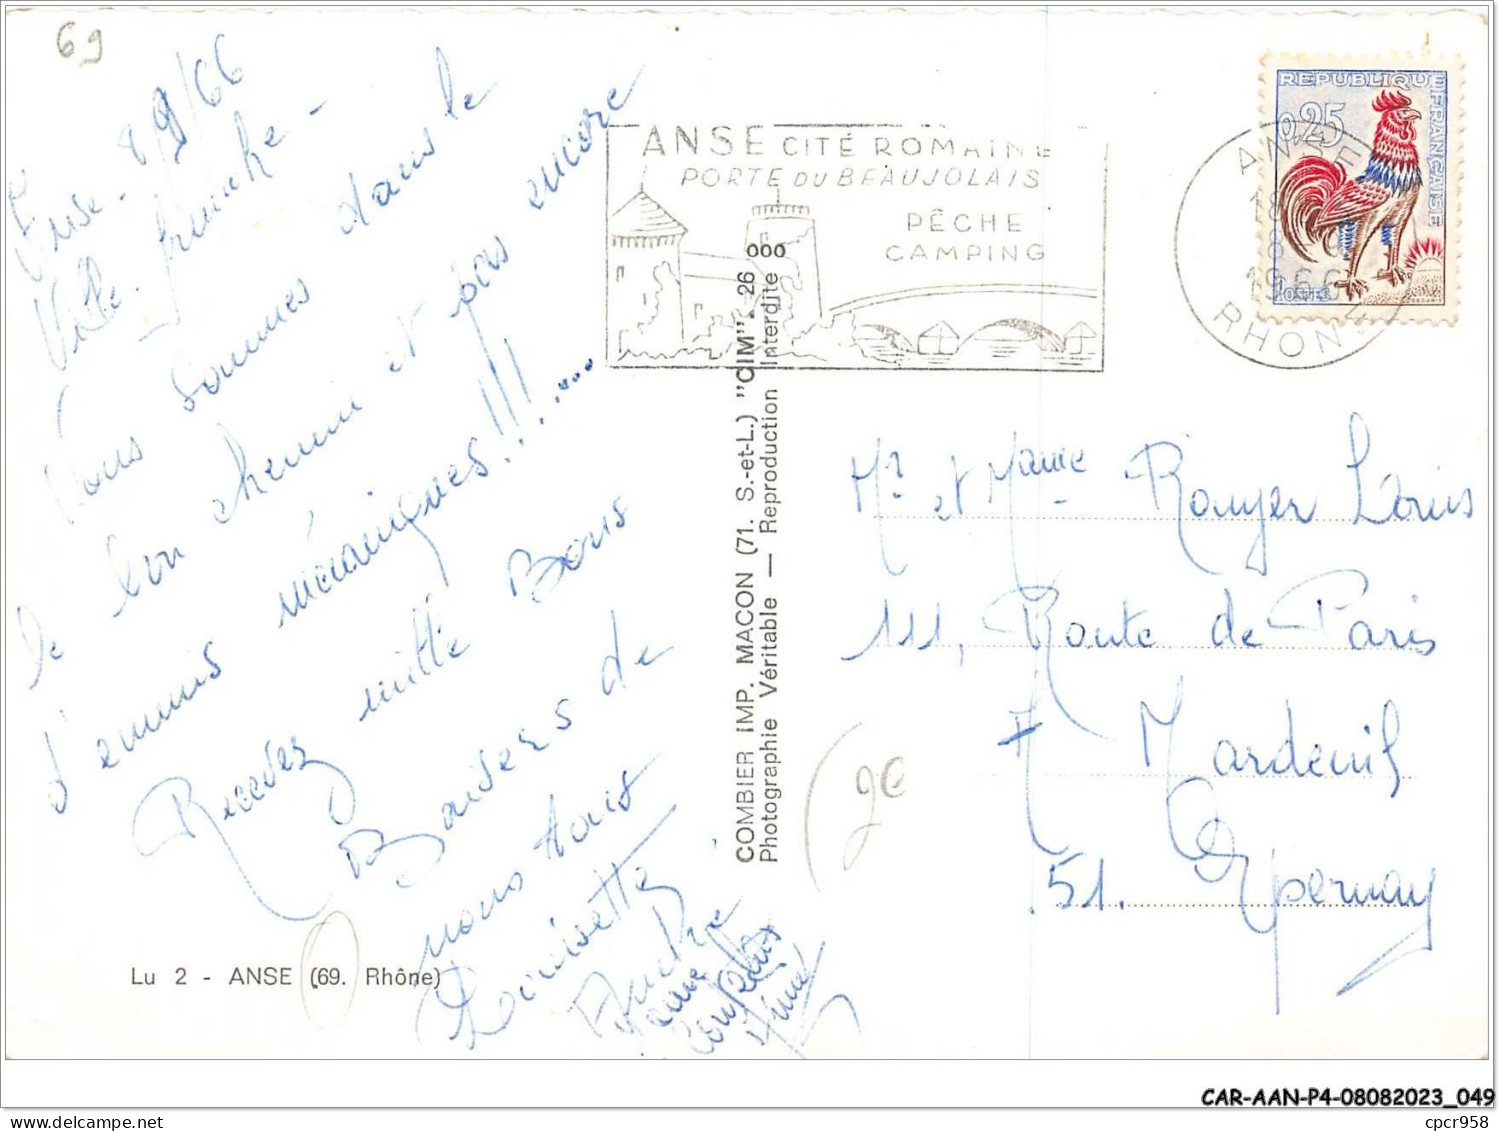 69
Anse. 8/9/66
Ville franche -
Nous sommes dans le
bon chemin et pas encore
d'ennuis mécaniques!!!.....
Recevez mille Bons
Baisers de
nous tous
Louisette
Lu 2 - ANSE (69. Rhône)
COMBIER IMP. MACON (71. S.-et-L.) "CIM". 26 000
Photographie Véritable — Reproduction Interdite
ANSE CITÉ ROMAINE
PORTE DU BEAUJOLAIS
PÊCHE
CAMPING
ANSE
18
8
1966
RHONE
REPUBLIQUE FRANÇAISE
0,25
POSTES
Mr et Mame Rouyer Louis
111, Route de Paris
Mardeuil
51. Epernay
CAR-AAN-P4-08082023_049
cpcr958